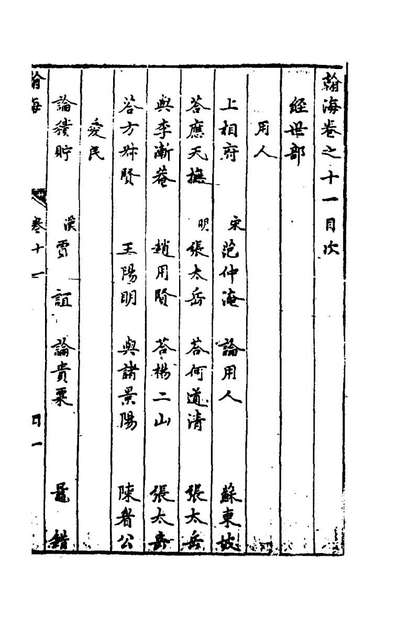 翰海卷之十一目次
經世部
用人
上相府 宋 范仲淹 論用人 蘇東坡
荅應天撫 明 張太岳 荅何道清 張太岳
與李漸菴 趙用賢 荅楊二山 張太岳
荅方叔賢 王陽明 與諸景陽 陳眉公
愛民
論積貯 漢 賈誼 論貴粟 鼂錯
翰海 卷十一 目一